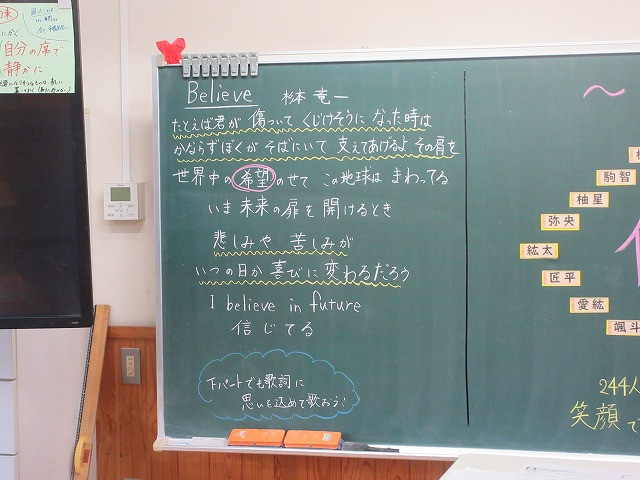 自分の席で
静かに
Believe 杉本竜一
たとえば君が 傷ついて くじけそうに なった時は
かならずぼくが そばにいて 支えてあげるよ その肩を
世界中の 希望のせて この地球は まわってる
いま 未来の扉を 開けるとき
悲しみや 苦しみが
いつの日か 喜びに 変わるだろう
I believe in future
信じてる
下パートでも歌詞に
思いを込めて歌おう!
〜
駒智
柚星
弥央
紘太
匠平
愛紘
颯斗
244人
笑顔で